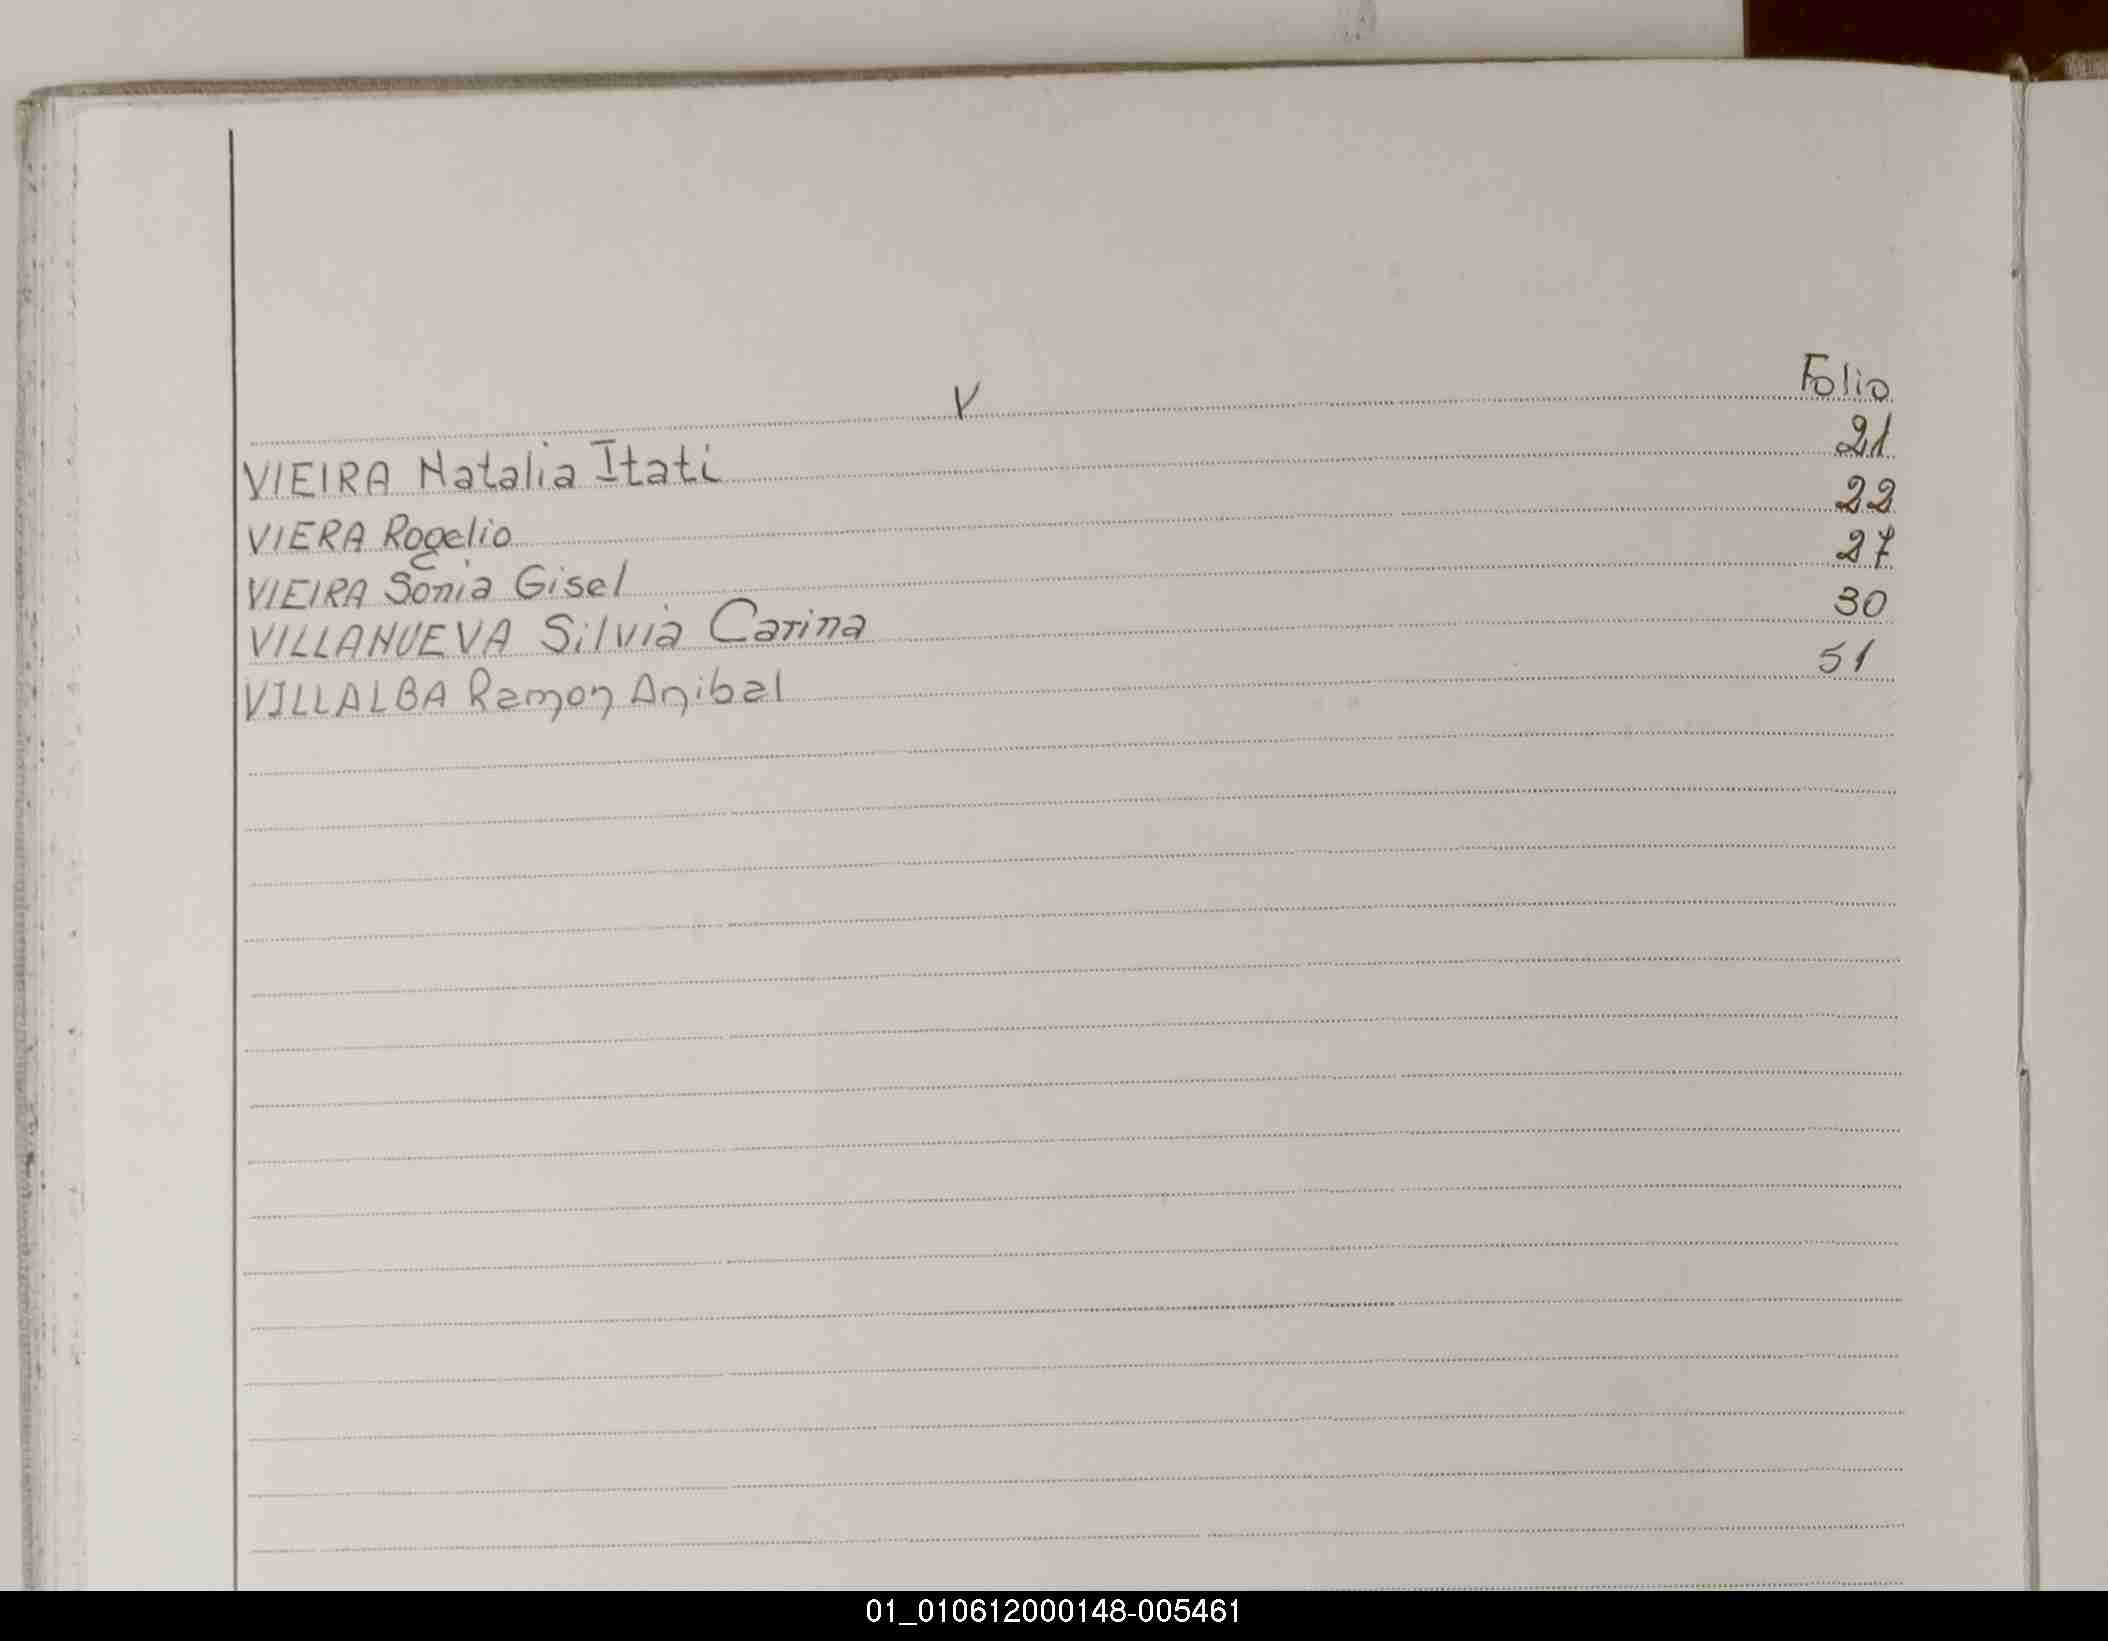 V Folio
VIEIRA Natalia Itati 21
VIERA Rogelio 22
VIEIRA Sonia Gisel 27
VILLANUEVA Silvia Carina 30
VILLALBA Ramon Anibal 51
01_010612000148-005461